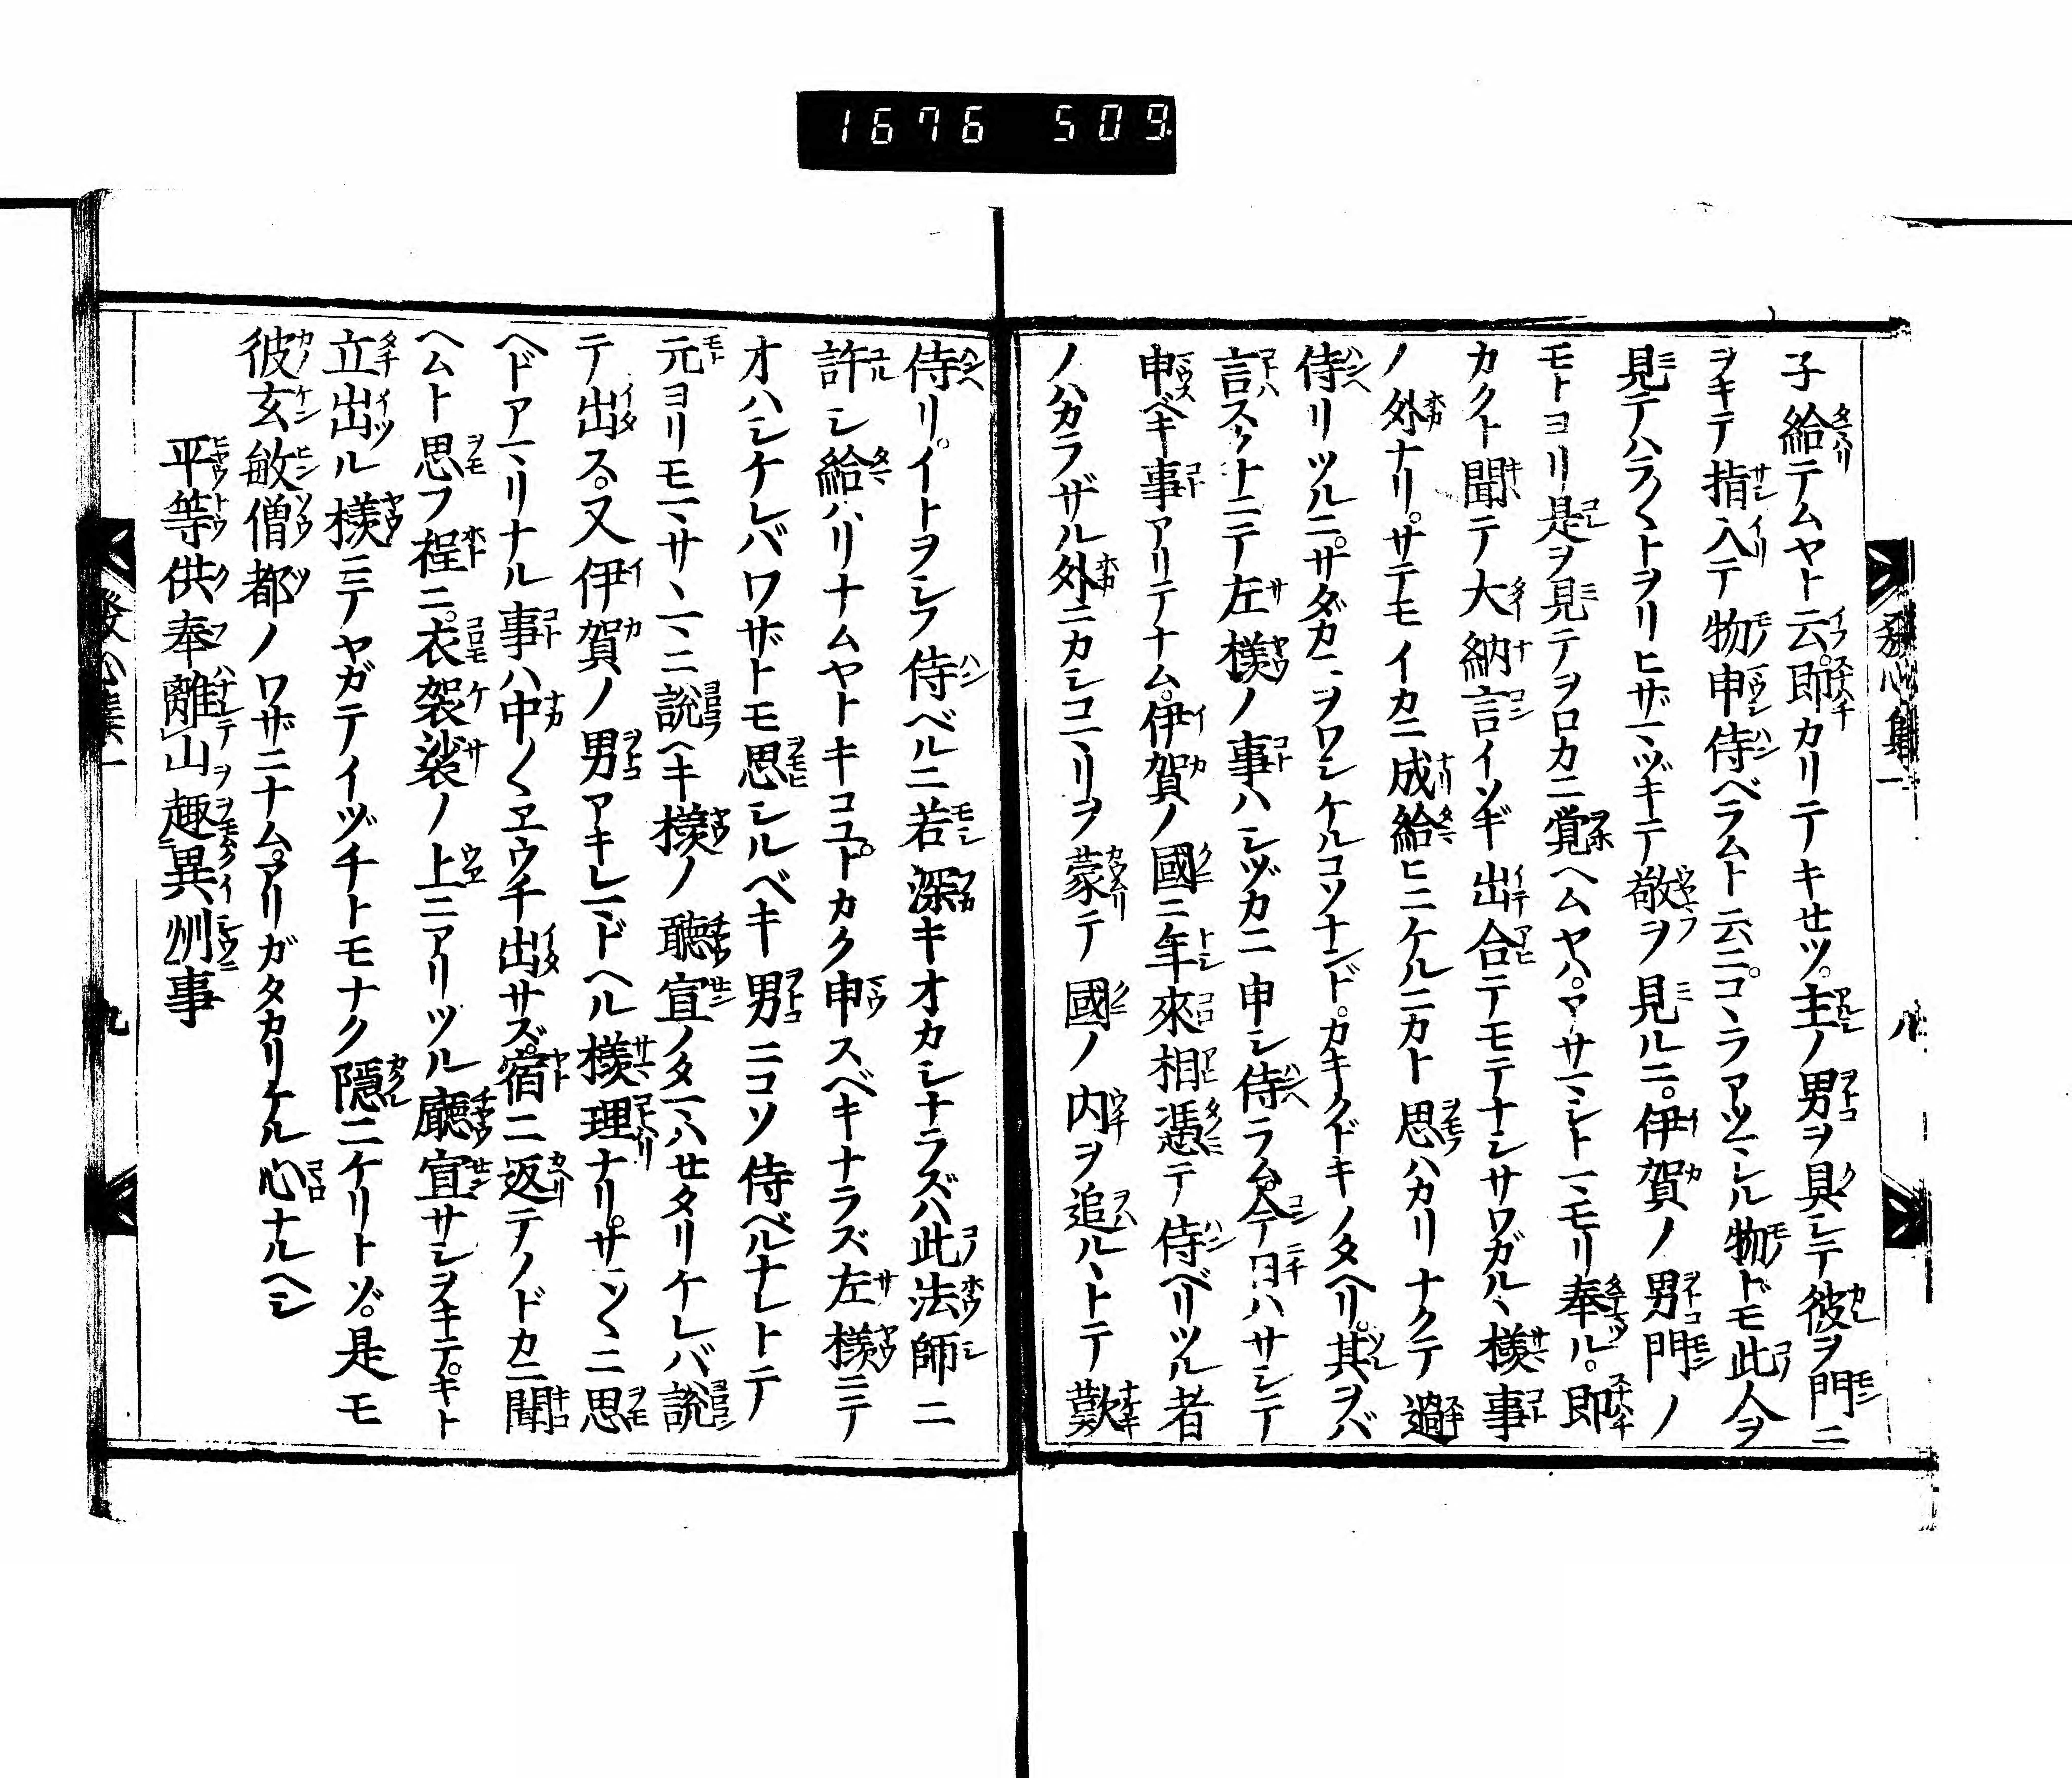 1676 509
發心集一
八
子給テムヤト云。即カリテキセツ。主ノ男ヲ具シテ彼ヲ門ニ
ヲキテ指入テ物申侍ベラムト云ニ。コヽラアツマレル物ドモ此人ヲ
見テハラ〱トヲリヒザマヅキテ敬ヲ見ルニ。伊賀ノ男門ノ
モトヨリ是ヲ見テヲロカニ覚ヘムヤハ。アサマシトマモリ奉ル。即
カクト聞テ大納言イソギ出合テモテナシサワガルヽ様事
ノ外ナリ。サテモイカニ成給ヒニケルニカト思ハカリナクテ過
侍リツルニ。サダカニヲワシケルコソナンド。カキクドキノタヘリ。其ヲバ
言スクナニテ左様ノ事ハシヅカニ申シ侍ラム。今日ハサシテ
申ベキ事アリテナム。伊賀ノ國ニ年來相憑テ侍ベリツル者
ノハカラザル外ニカシコマリヲ蒙テ國ノ内ヲ追ルヽトテ歎
侍リ。イトヲシフ侍ベルニ若深キオカシナラズハ此法師ニ
許シ給ハリナムヤトキコユ。トカク申スベキナラズ左様ニテ
オハシケレバワザトモ思シルベキ男ニコソ侍ベルナレトテ
元ヨリモマサヽマニ説ヘキ様ノ聴宣ノタマハセタリケレバ説
テ出ス。又伊賀ノ男アキレマドヘル様理ナリ。サマ〱ニ思
ヘドアマリナル事ハ中〱ヱウチ出サズ。宿ニ返テノドカニ聞
ヘムト思フ程ニ。衣袈裟ノ上ニアリツル廳宣サシヲキテ。キト
立出ル様ニテヤガテイヅチトモナク隱ニケリトゾ。是モ
彼玄敏僧都ノワザニナム。アリガタカリケル心ナルヘシ
平等供奉離山趣異州事
發心集一
九